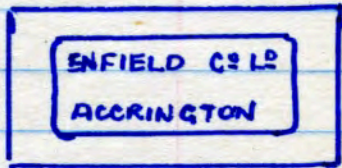 ENFIELD Cº Lᴰ
ACCRINGTON